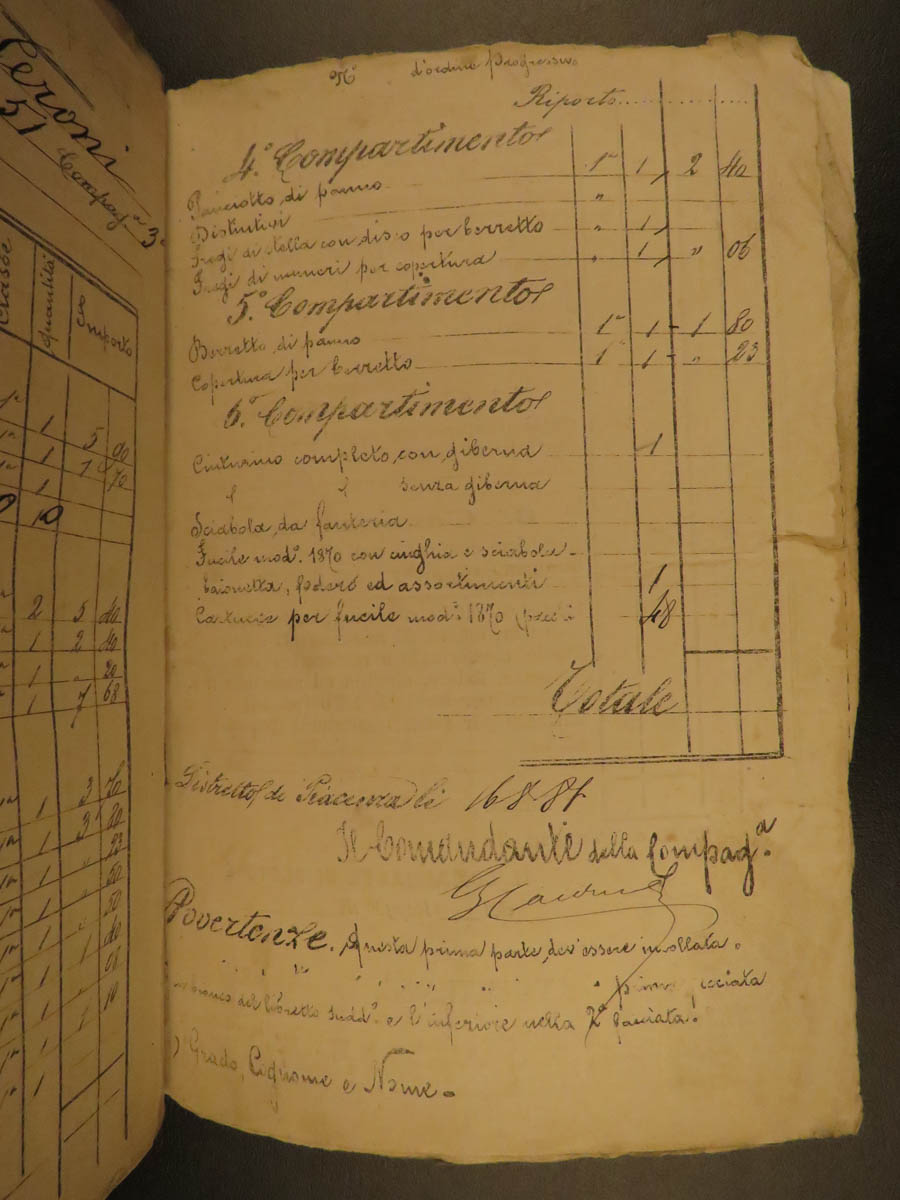 Ceroni
51 Compagª 3ª
Classe Quantità Importo
1 5 90
1 1 70
1
10
2 5 40
1 2 40
1 „ 20
1 7 68
1ª 1 3 70
1ª 1 3 20
1ª 1 „ 23
1ª 1 „ 50
1ª 1 „ 50
1ª 1 1 40
1ª 1 „ 08
1ª 1 „ 10
1ª 1
Nº d'ordine Progressivo
Riporto
4º Compartimento
Panciotto di panno 1ª 1, 2 40
Distintivi „
Fregi di stella con disco per berretto „ 1,
Fregi di numeri per copertura „ 1, „ 06
5º Compartimento
Berretto di panno 1ª 1 - 1 80
Copertura per berretto 1ª 1 - „ 23
6º Compartimento
Cinturino completo con giberna 1
senza giberna
Sciabola da fanteria
Fucile modº. 1870 con cinghia e sciabola -
baionetta, fodero ed assortimenti 1
Cartucce per fucile modº. 1870 pacchi 48
Totale
Distretto di Piacenza li 16 8 87
Il Comandante della Compagª.
Avvertenze. Questa prima parte dev'essere incollata.
prima facciata
del libretto sudd°. e l'inferiore nella 2ª facciata.
) Grado, Cognome e Nome.